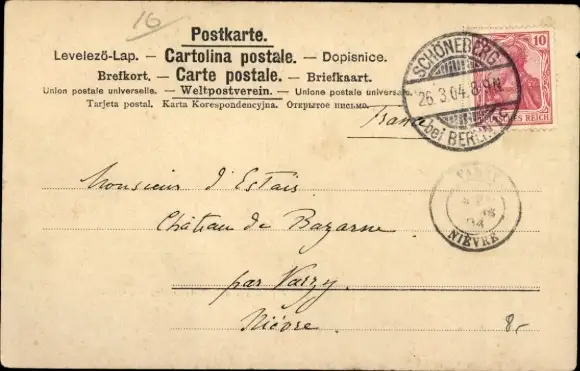 16
Postkarte.
Levelező-Lap. — Cartolina postale. — Dopisnice.
Brefkort. — Carte postale. — Briefkaart.
Union postale universelle. — Weltpostverein. — Unione postale universale
Tarjeta postal. Karta Korespondencyjna. Открытое письмо.
10
REICH
SCHÖNEBERG
26.3.04. 8-9N.
bei BERLIN
Monsieur d'Estais
Château de Bazarne
par Varzy.
Nièvre
NIÈVRE
04
8,-